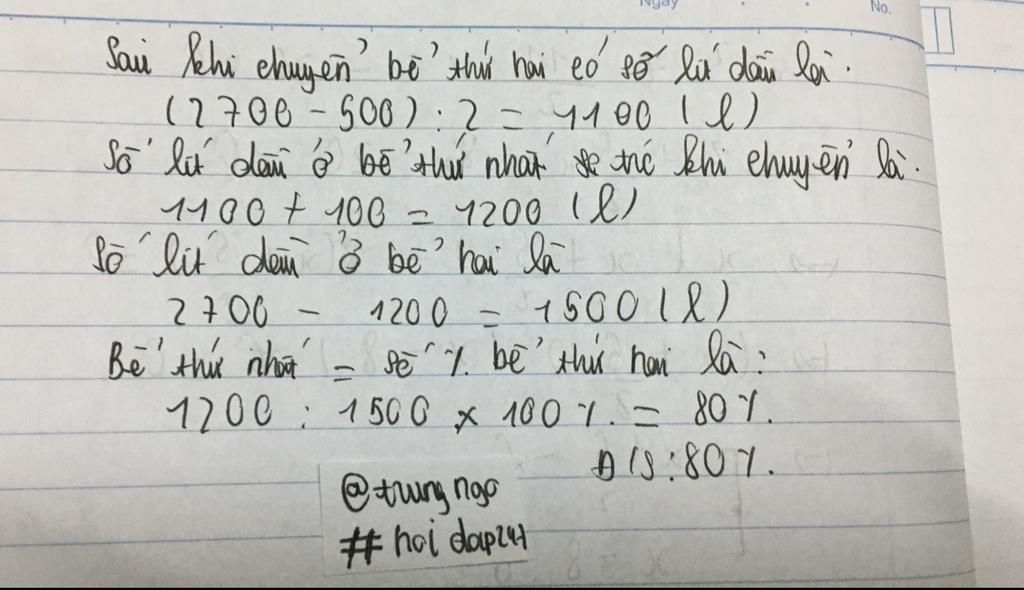 Ngày
No.
Sau khi chuyển bể thứ hai có số lít dầu là.
(2700 - 500) : 2 = 1100 (l)
Số lít dầu ở bể thứ nhất trc khi chuyển là.
1100 + 100 = 1200 (l)
Số lít dầu ở bể hai là
2700 - 1200 = 1500 (l)
Bể thứ nhất = số % bể thứ hai là:
1200 : 1500 x 100 % = 80 %.
Đ/S : 80 %.
@trung ngo
# hoi dap247